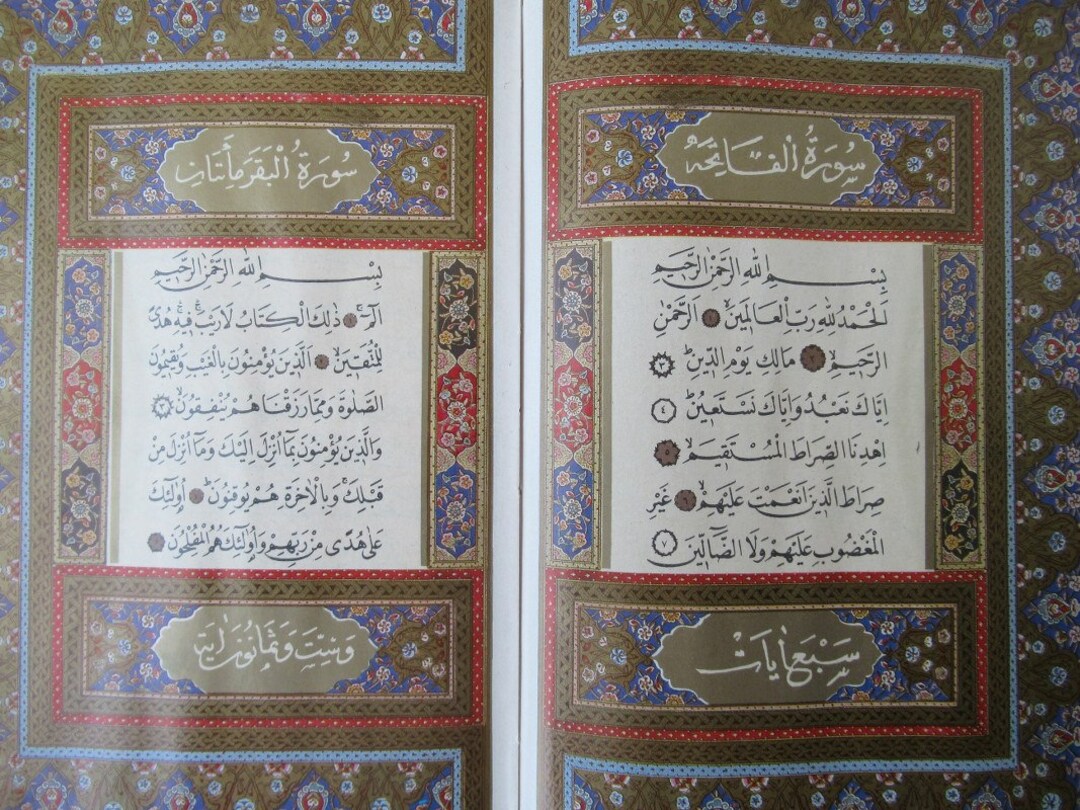 سُورَةُ الْفَاتِحَةِ
بِسْمِ اللّٰهِ الرَّحْمٰنِ الرَّحِيمِ
اَلْحَمْدُ لِلّٰهِ رَبِّ الْعَالَمِينَۙ ١ اَلرَّحْمٰنِ
الرَّحِيمِۙ ٢ مَالِكِ يَوْمِ الدِّينِۜ ٣
اِيَّاكَ نَعْبُدُ وَاِيَّاكَ نَسْتَعِينُۜ ٤
اِهْدِنَا الصِّرَاطَ الْمُسْتَقِيمَۙ ٥
صِرَاطَ الَّذِينَ اَنْعَمْتَ عَلَيْهِمْۙ ٦ غَيْرِ
الْمَغْضُوبِ عَلَيْهِمْ وَلَا الضَّٓالِّينَ ٧
سَبْعُ اٰيَاتٍ
سُورَةُ الْبَقَرَةِ مِائَتَانِ
بِسْمِ اللّٰهِ الرَّحْمٰنِ الرَّحِيمِ
الٓمٓۚ ١ ذٰلِكَ الْكِتَابُ لَا رَيْبَۚۛ فِيهِۚۛ هُدًى
لِلْمُتَّقِينَۙ ٢ اَلَّذِينَ يُؤْمِنُونَ بِالْغَيْبِ وَيُقِيمُونَ
الصَّلٰوةَ وَمِمَّا رَزَقْنَاهُمْ يُنْفِقُونَۙ ٣
وَالَّذِينَ يُؤْمِنُونَ بِمَٓا اُنْزِلَ اِلَيْكَ وَمَٓا اُنْزِلَ مِنْ
قَبْلِكَۚ وَبِالْاٰخِرَةِ هُمْ يُوقِنُونَۜ ٤ اُو۬لٰٓئِكَ
عَلٰى هُدًى مِنْ رَبِّهِمْ وَاُو۬لٰٓئِكَ هُمُ الْمُفْلِحُونَ ٥
وَسِتٌّ وَثَمَانُونَ اٰيَةً